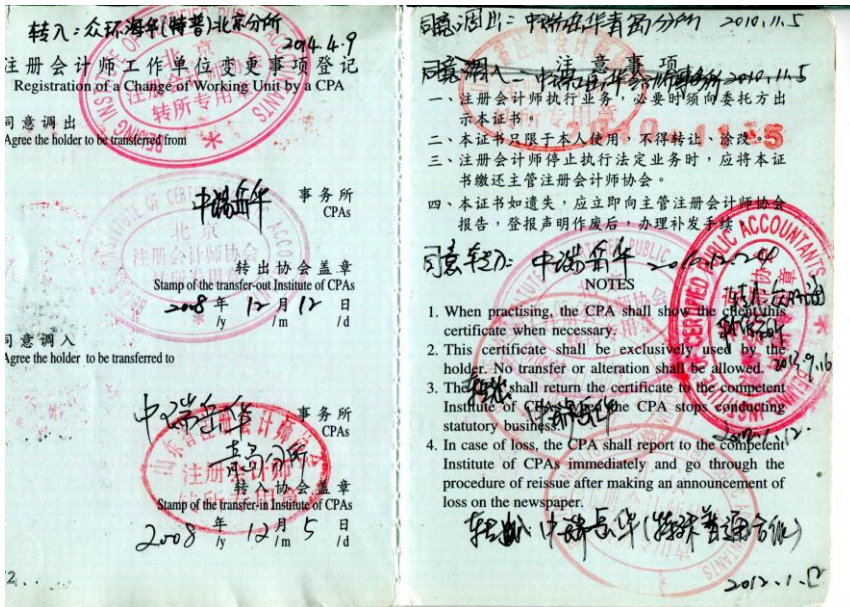 转入:众环海华(特普)北京分所
2014.4.9
注册会计师工作单位变更事项登记
Registration of a Change of Working Unit by a CPA
同意调出
Agree the holder to be transferred from
中瑞岳华
事务所
CPAs
转出协会盖章
Stamp of the transfer-out Institute of CPAs
2008年12月12日
/y /m /d
同意调入
Agree the holder to be transferred to
中瑞岳华
青岛分所
事务所
CPAs
转入协会盖章
Stamp of the transfer-in Institute of CPAs
2008年12月5日
/y /m /d
同意调出:中瑞岳华青岛分所 2010.11.5
注意事项
同意调入:中瑞岳华会计师事务所 2010.11.5
一、注册会计师执行业务,必要时须向委托方出
示本证书。
二、本证书只限于本人使用,不得转让、涂改。
三、注册会计师停止执行法定业务时,应将本证
书缴还主管注册会计师协会。
四、本证书如遗失,应立即向主管注册会计师协会
报告,登报声明作废后,办理补发手续。
中瑞岳华
NOTES
1. When practising, the CPA shall show the client this
certificate when necessary.
2. This certificate shall be exclusively used by the
holder. No transfer or alteration shall be allowed.
2013.9.16
3. The CPA shall return the certificate to the competent
Institute of CPAs when the CPA stops conducting
statutory business.
转出:
中瑞岳华
2012.1.12.
4. In case of loss, the CPA shall report to the competent
Institute of CPAs immediately and go through the
procedure of reissue after making an announcement of
loss on the newspaper.
中瑞岳华(特殊普通合伙)
2012.1.12